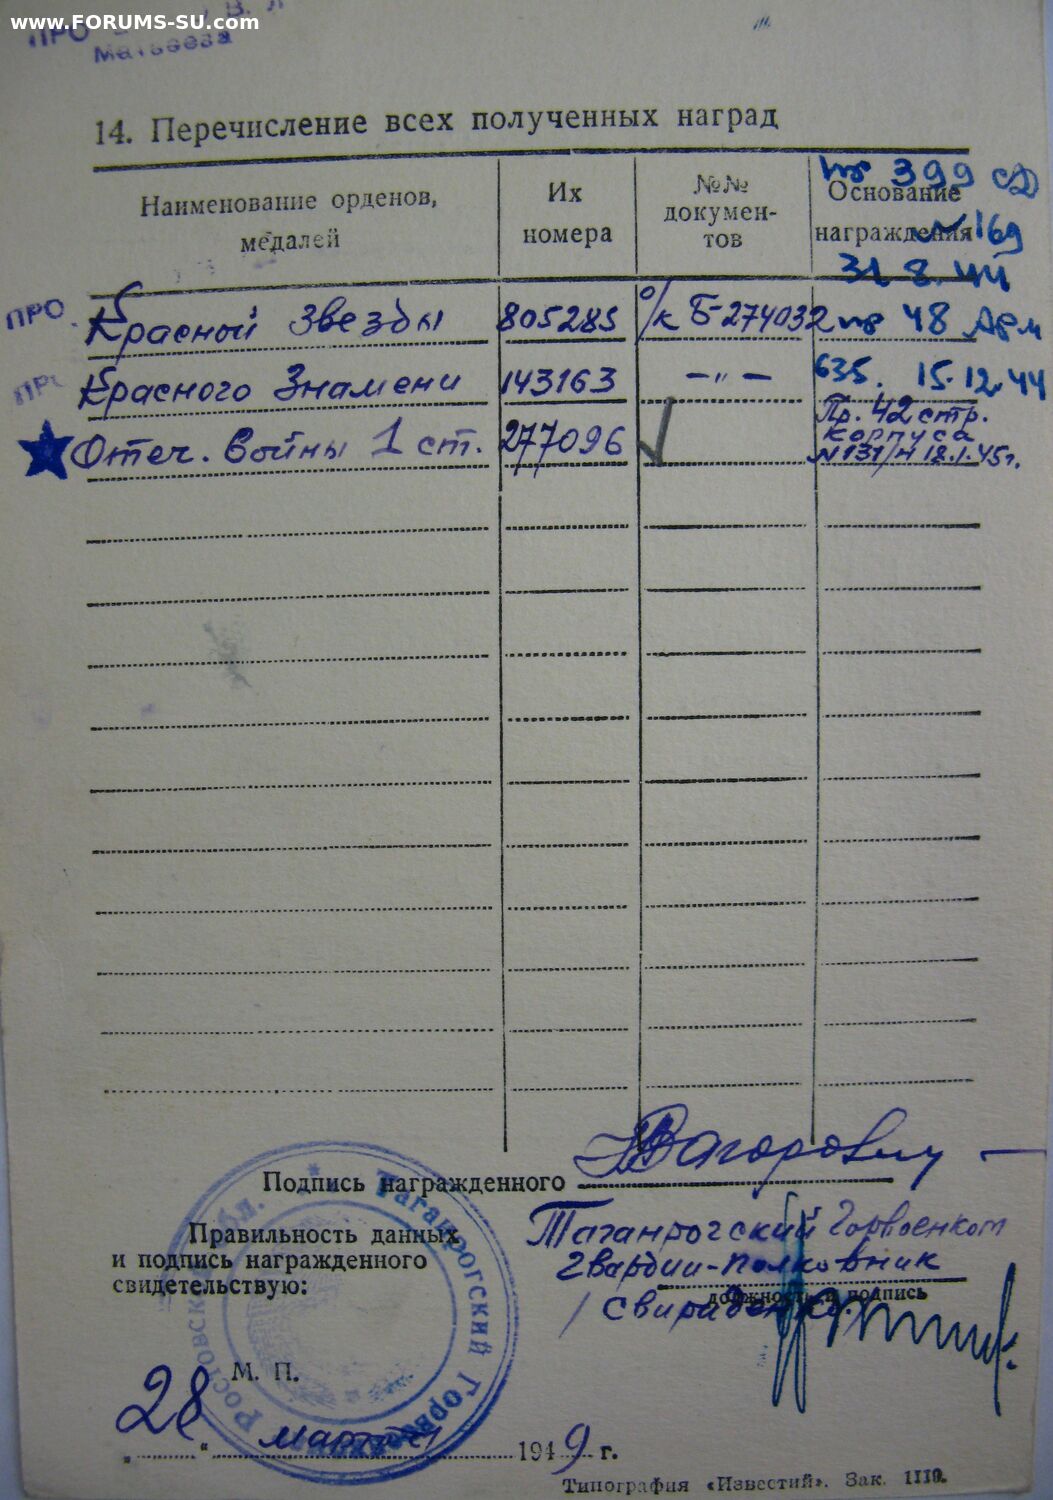 www.FORUMS-SU.com
ПРО
Матвеева
14. Перечисление всех полученных наград
Наименование орденов, медалей
Их номера
№№ докумен-тов
Основание награждения
пр 399 сд
№ 169
31.8.44
ПРО Красной Звезды 805285 о/к Б-274032 пр 48 Арм
Красного Знамени 143163 —„— 635. 15.12.44
Отеч. Войны 1 ст. 277096 Пр. 42 стр.
корпуса
N 131/н 18.1.45г.
Подпись награжденного
Правильность данных
и подпись награжденного
свидетельствую:
Таганрогский Горвоенком
Гвардии-полковник
должность и подпись
М. П.
28 марта 1949 г.
Ростовск обл. Таганрогский
Типография «Известий». Зак. 1110.